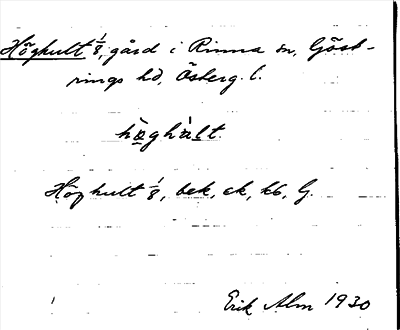 Höghult 1/8, gård i Rinna sn, Göst-
rings hd, Österg. l.
hö̀ghàlt
Höghult 1/8, bek, ek, kb, G.
Erik Alm 1930